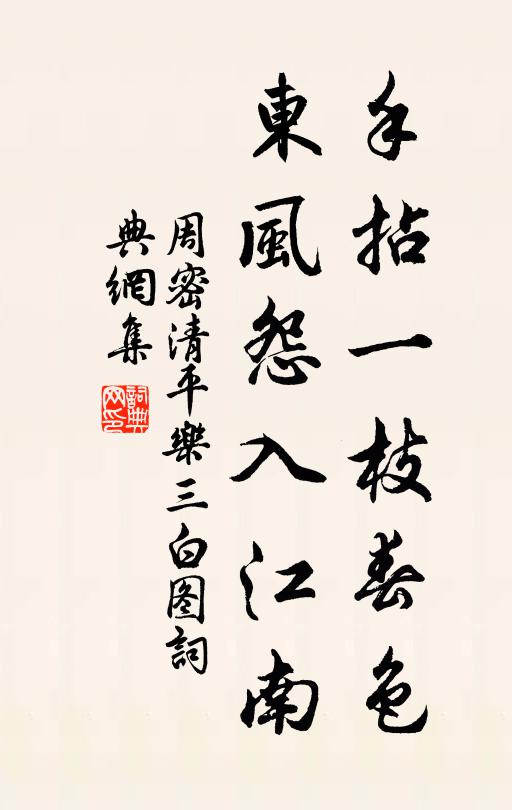 手拈一枝春色
東風怨入江南
周密清平樂三白图詞
典網集
詞典网印